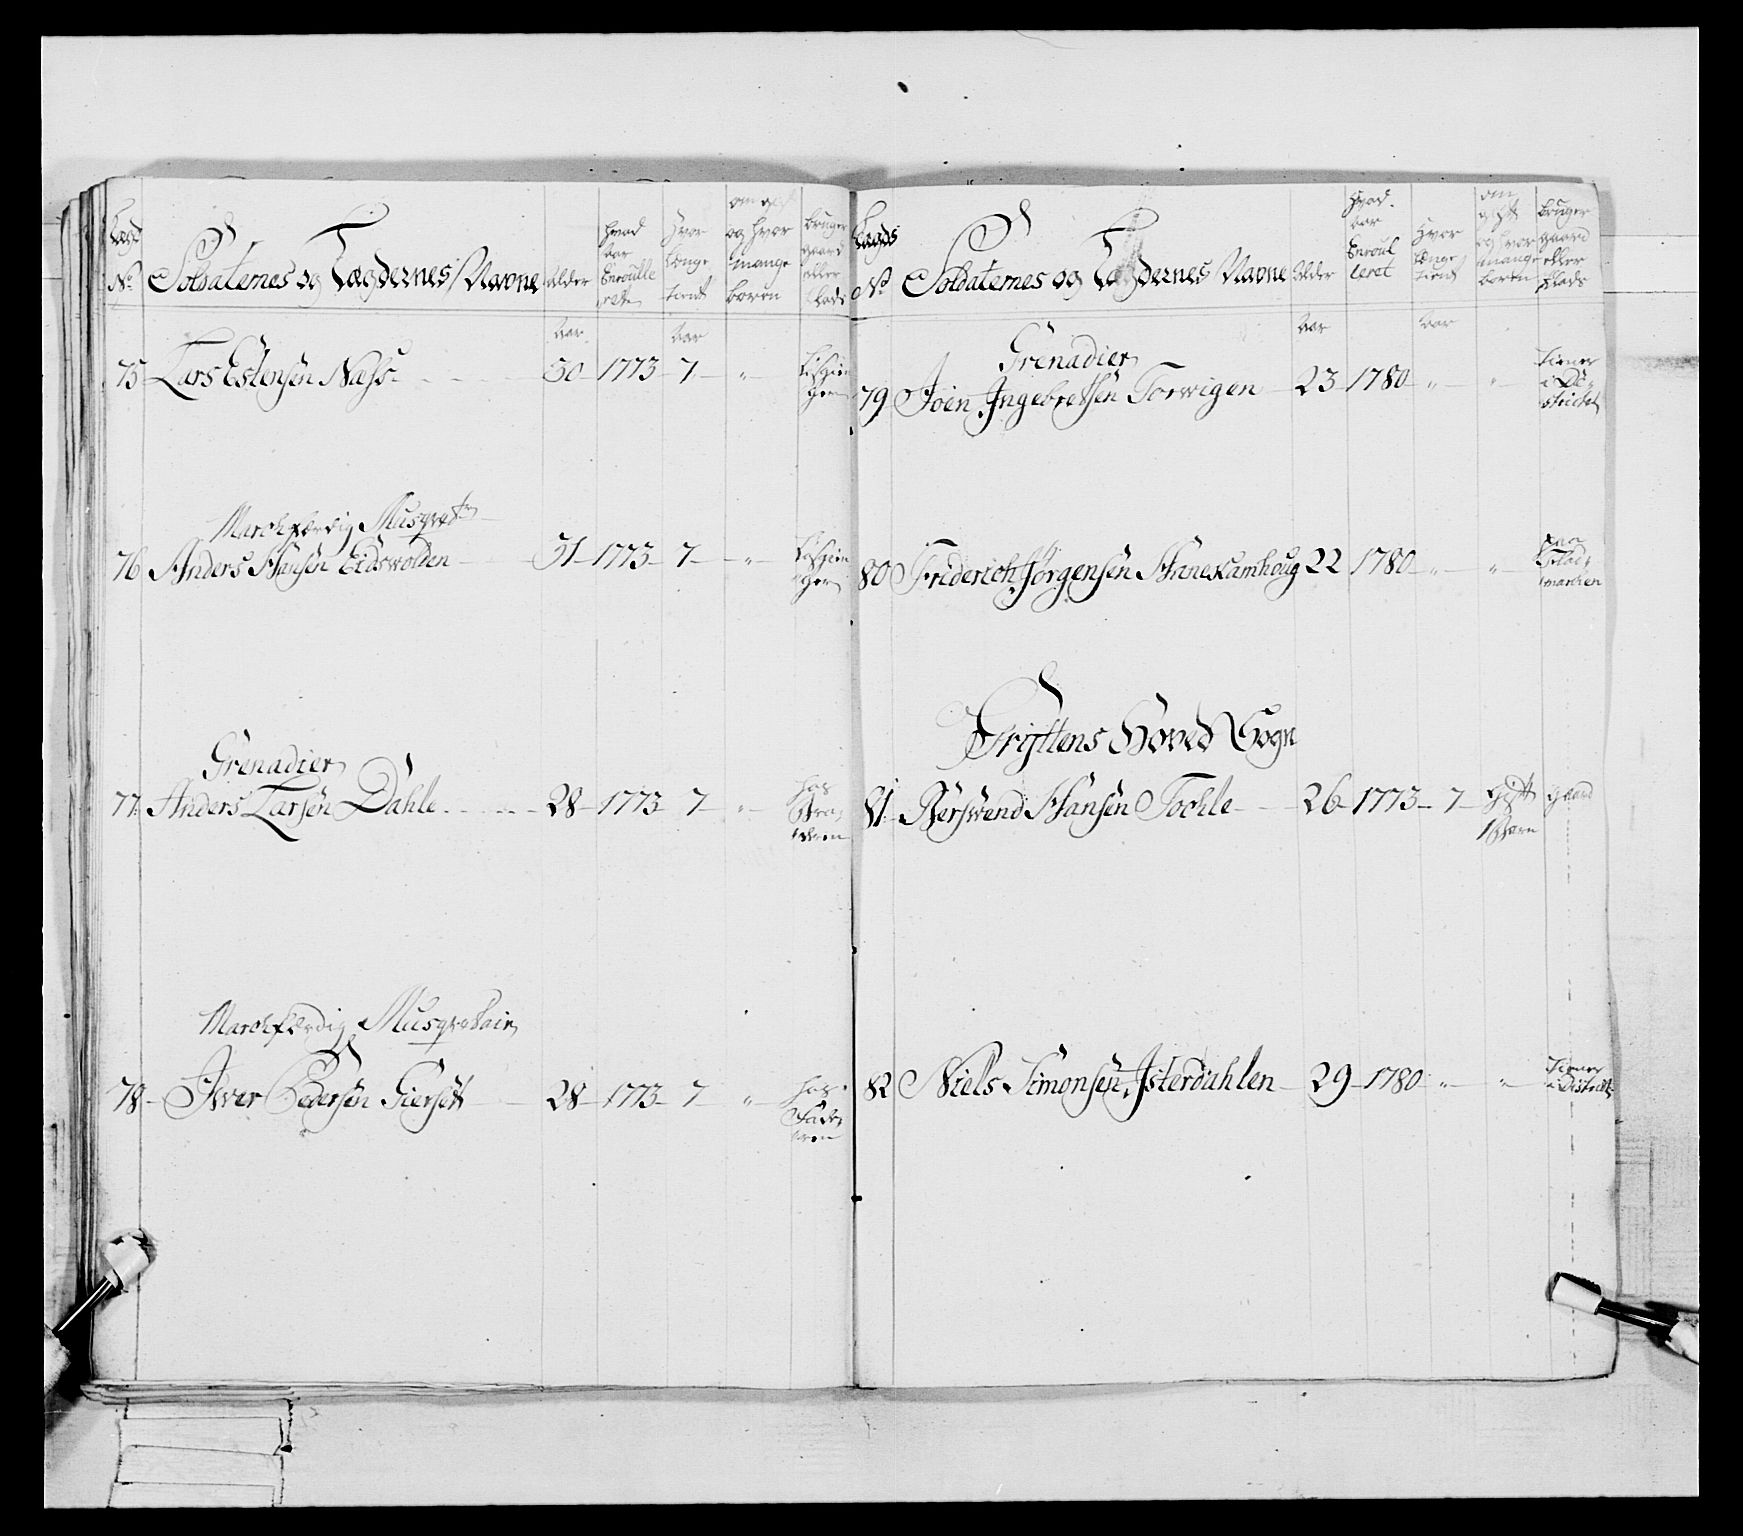 Lægd
No
Soldaternes og Lægdernes Navne
Alder
hvad
Aar
Enroulle
ret
Hvor
længe
tient
om gift
og hvor
mange
børn
bruger
gaard
eller
Plads
Aar
Aar
75 Lars Estensen Næss 30 1773 7 "
Marchfærdig Musqvetr
76 Anders Hansen Eidswolden 31 1773 7 "
Grenadier
77 Anders Larsen Dahle 28 1773 7 " hos
Marchfærdig Musqvetair
78 Iver Pedersen Giersett 28 1773 7 " hos
Fade
ren
Lægds
No
Soldaternes og Lægdernes Navne
Alder
hvad
Aar
Enroul
leret
Hvor
længe
tient
om
gift
og hvor
mange
børn
bruger
gaard
eller
Plads
Aar
Aar
Grenadier
79 Joen Ingebretsen Torwigen 23 1780 " " tiener
i Di
strictet
80 Friderich Jørgensen Hanekamhoug 22 1780 " " paa
marchen
Gryttens Hoved Sogn
81 Bersvend Hansen Tochle 26 1773 7 Gift
1 Barn
gaard
82 Niels Simonsen Isterdahlen 29 1780 " " Tiener
i Distrikt